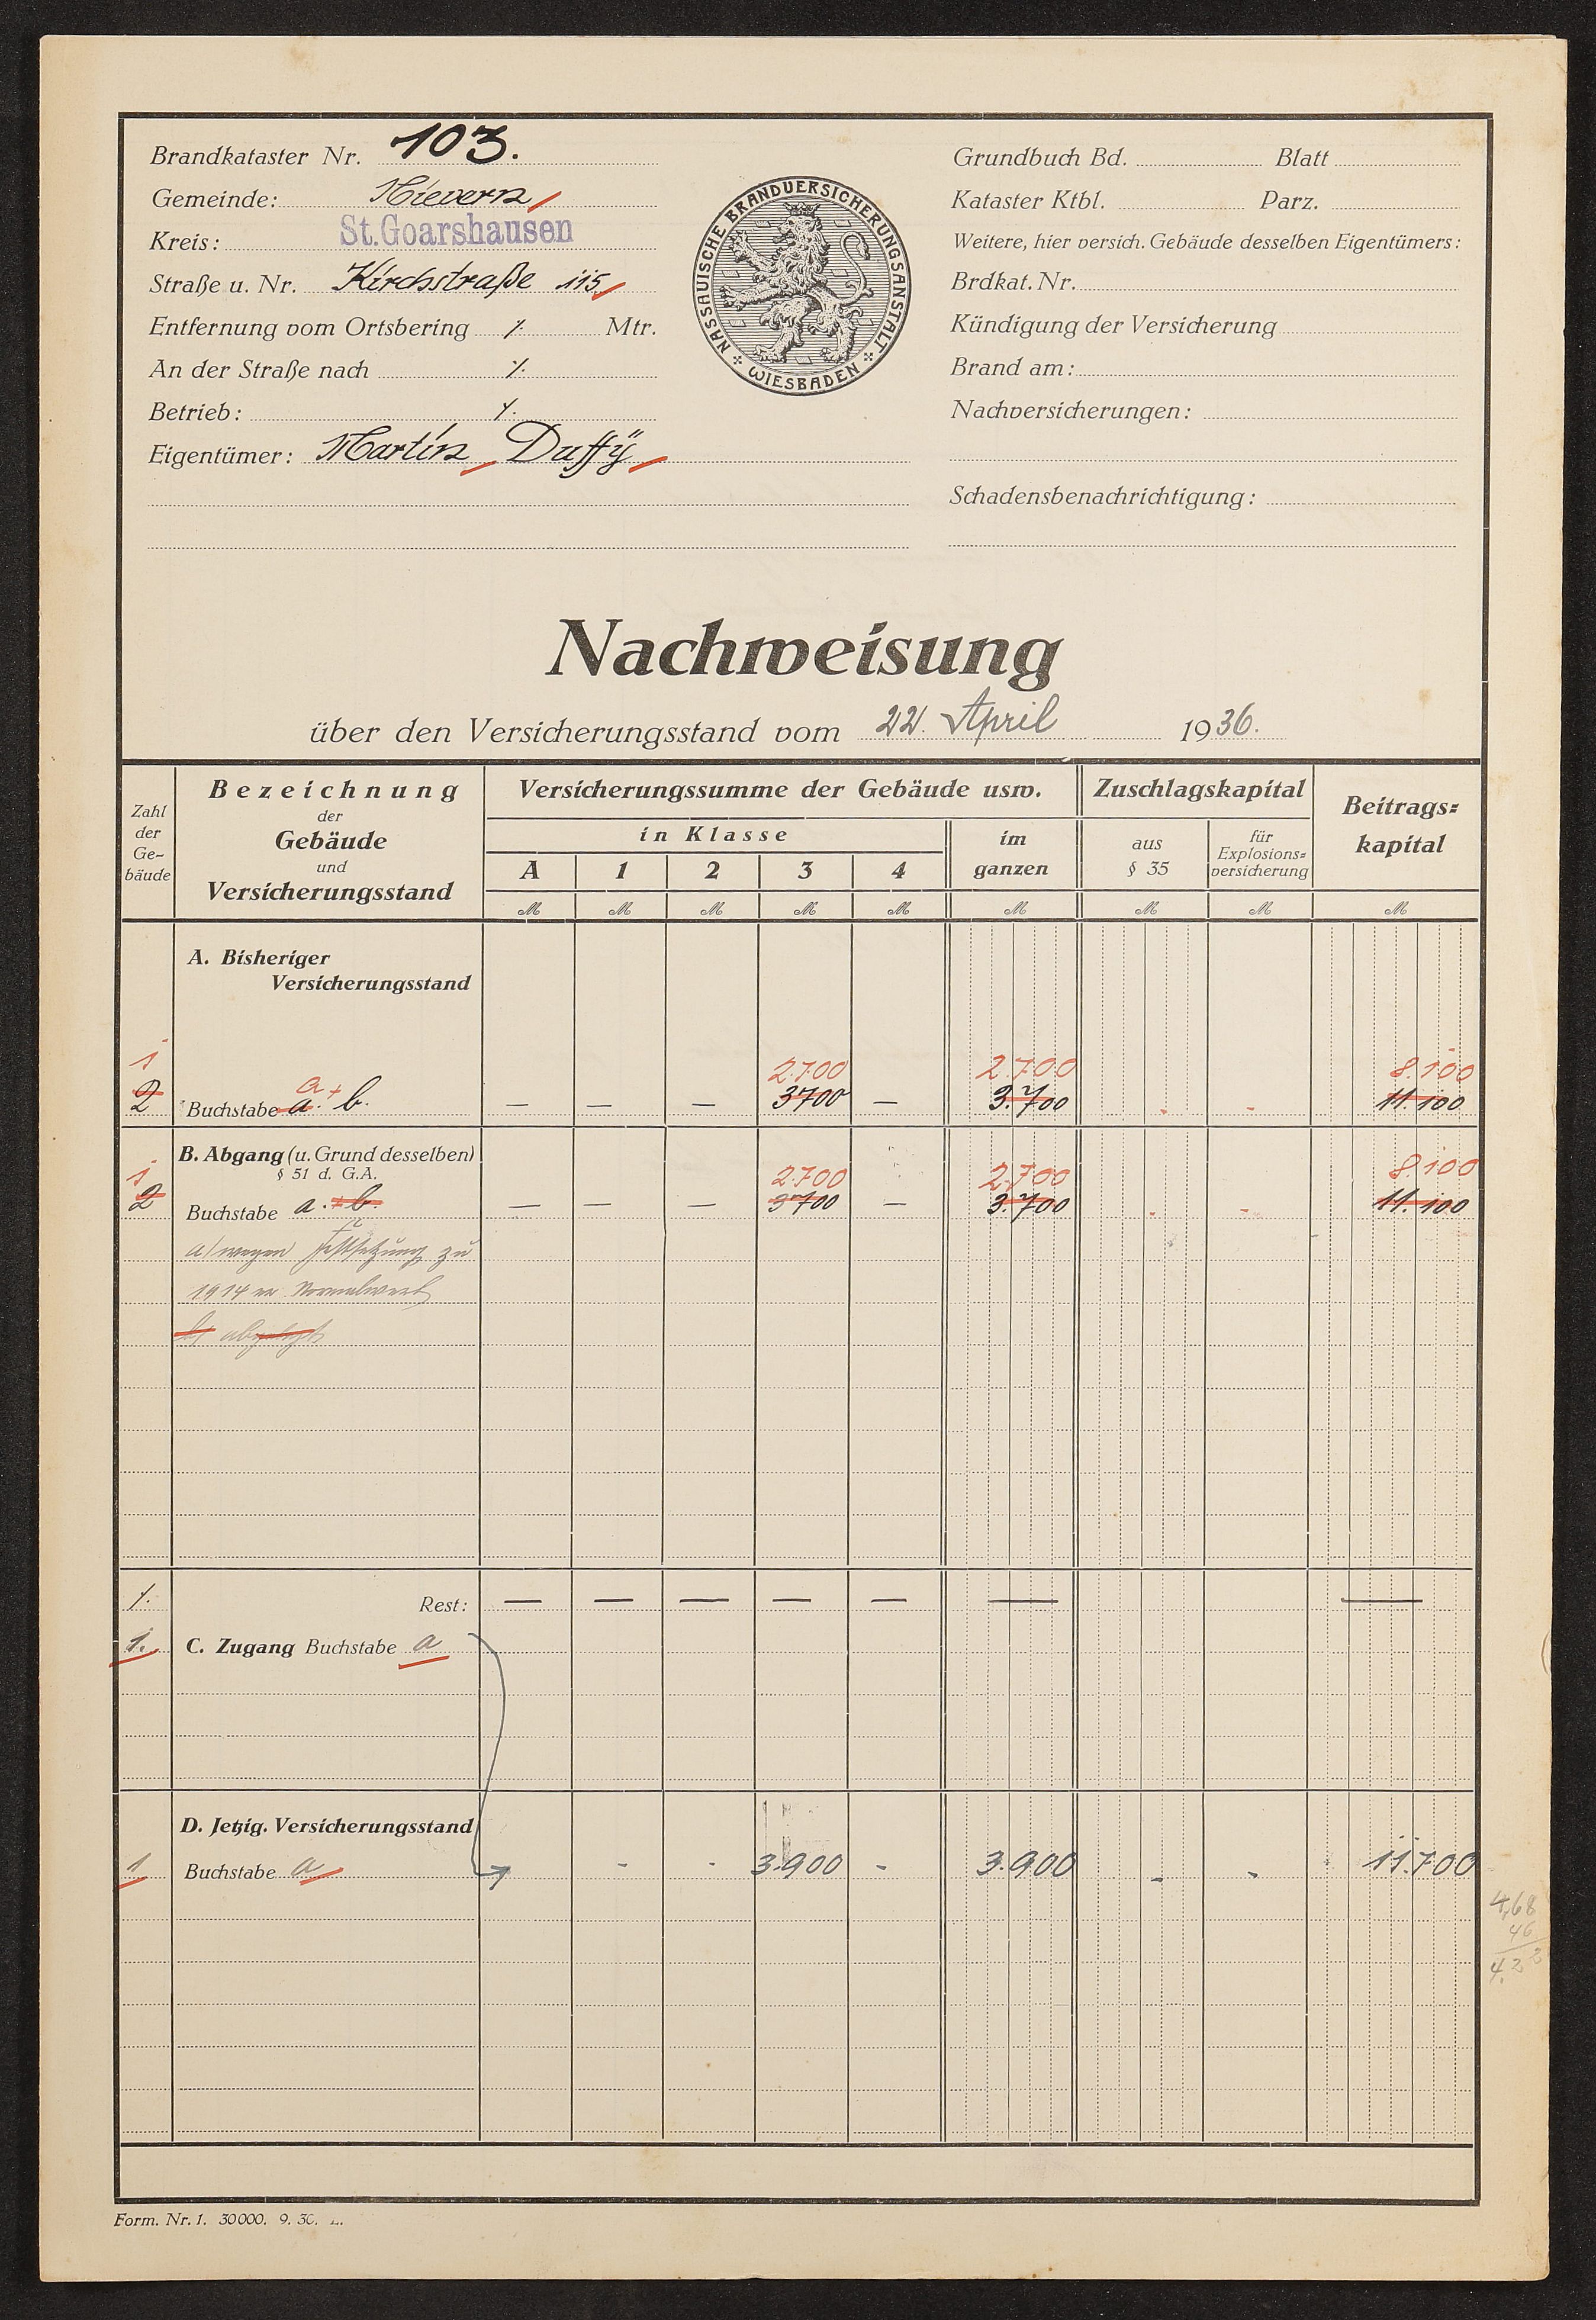 Brandkataster Nr. 103.
Gemeinde: Nievern
Kreis: St. Goarshausen
Straße u. Nr. Kirchstraße 115
Entfernung vom Ortsbering ./. Mtr.
An der Straße nach ./.
Betrieb: ./.
Eigentümer: Martin Duffÿ
NASSAUISCHE BRANDVERSICHERUNGSANSTALT
WIESBADEN
Grundbuch Bd. Blatt
Kataster Ktbl. Parz.
Weitere, hier versich. Gebäude desselben Eigentümers:
Brdkat. Nr.
Kündigung der Versicherung
Brand am:
Nachversicherungen:
Schadensbenachrichtigung:
Nachweisung
über den Versicherungsstand vom 22. April 1936.
Zahl der Ge-bäude
Bezeichnung der Gebäude und Versicherungsstand
Versicherungssumme der Gebäude usw.
in Klasse
A 1 2 3 4
im ganzen
Zuschlagskapital
aus § 35
für Explosions=versicherung
Beitrags=kapital
M M M M M M M M M
A. Bisheriger
Versicherungsstand
1 a + 2.700 2.700 8.100
2 Buchstabe a. b. — — — 3700 — 3.700 - - 11.100
B. Abgang (u. Grund desselben)
§ 51 d. G.A.
1 2.700 2.700 8.100
2 Buchstabe a. + b. — — — 3700 — 3.700 - - 11.100
a/ wegen Festsetzung zu
1914 er Normalwert
b/ abgelegt
./. Rest: — — — — — — —
1. C. Zugang Buchstabe a
D. Jetzig. Versicherungsstand
1 Buchstabe a - - 3.900 - 3.900 - - 11.700
4,68
46
4.22
Form. Nr. 1. 30000. 9. 30. L.